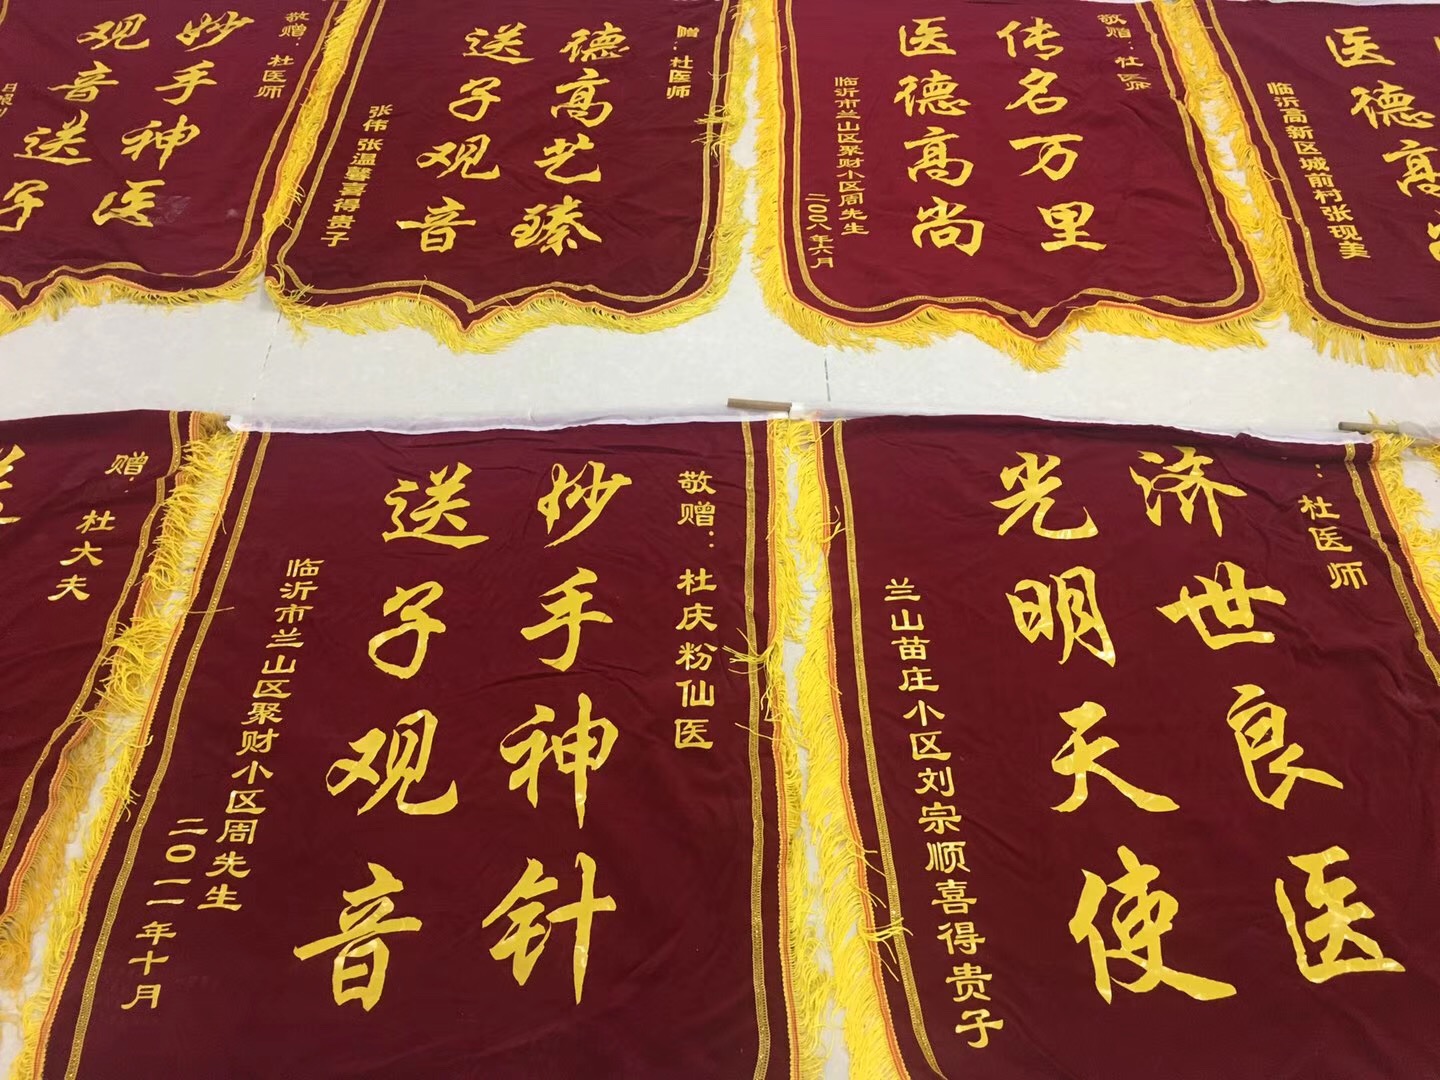 敬赠：杜医师
妙手神医
观音送子
赠：杜医师
德高艺臻
送子观音
张伟 张温馨喜得贵子
敬赠：杜医师
传名万里
医德高尚
临沂市兰山区聚财小区周先生
二00八年六月
医德高
临沂高新区城前村张现美
赠：
杜大夫
送
敬赠：杜庆粉仙医
妙手神针
送子观音
临沂市兰山区聚财小区周先生
二0一一年十月
：杜医师
济世良医
光明天使
兰山苗庄小区刘宗顺喜得贵子